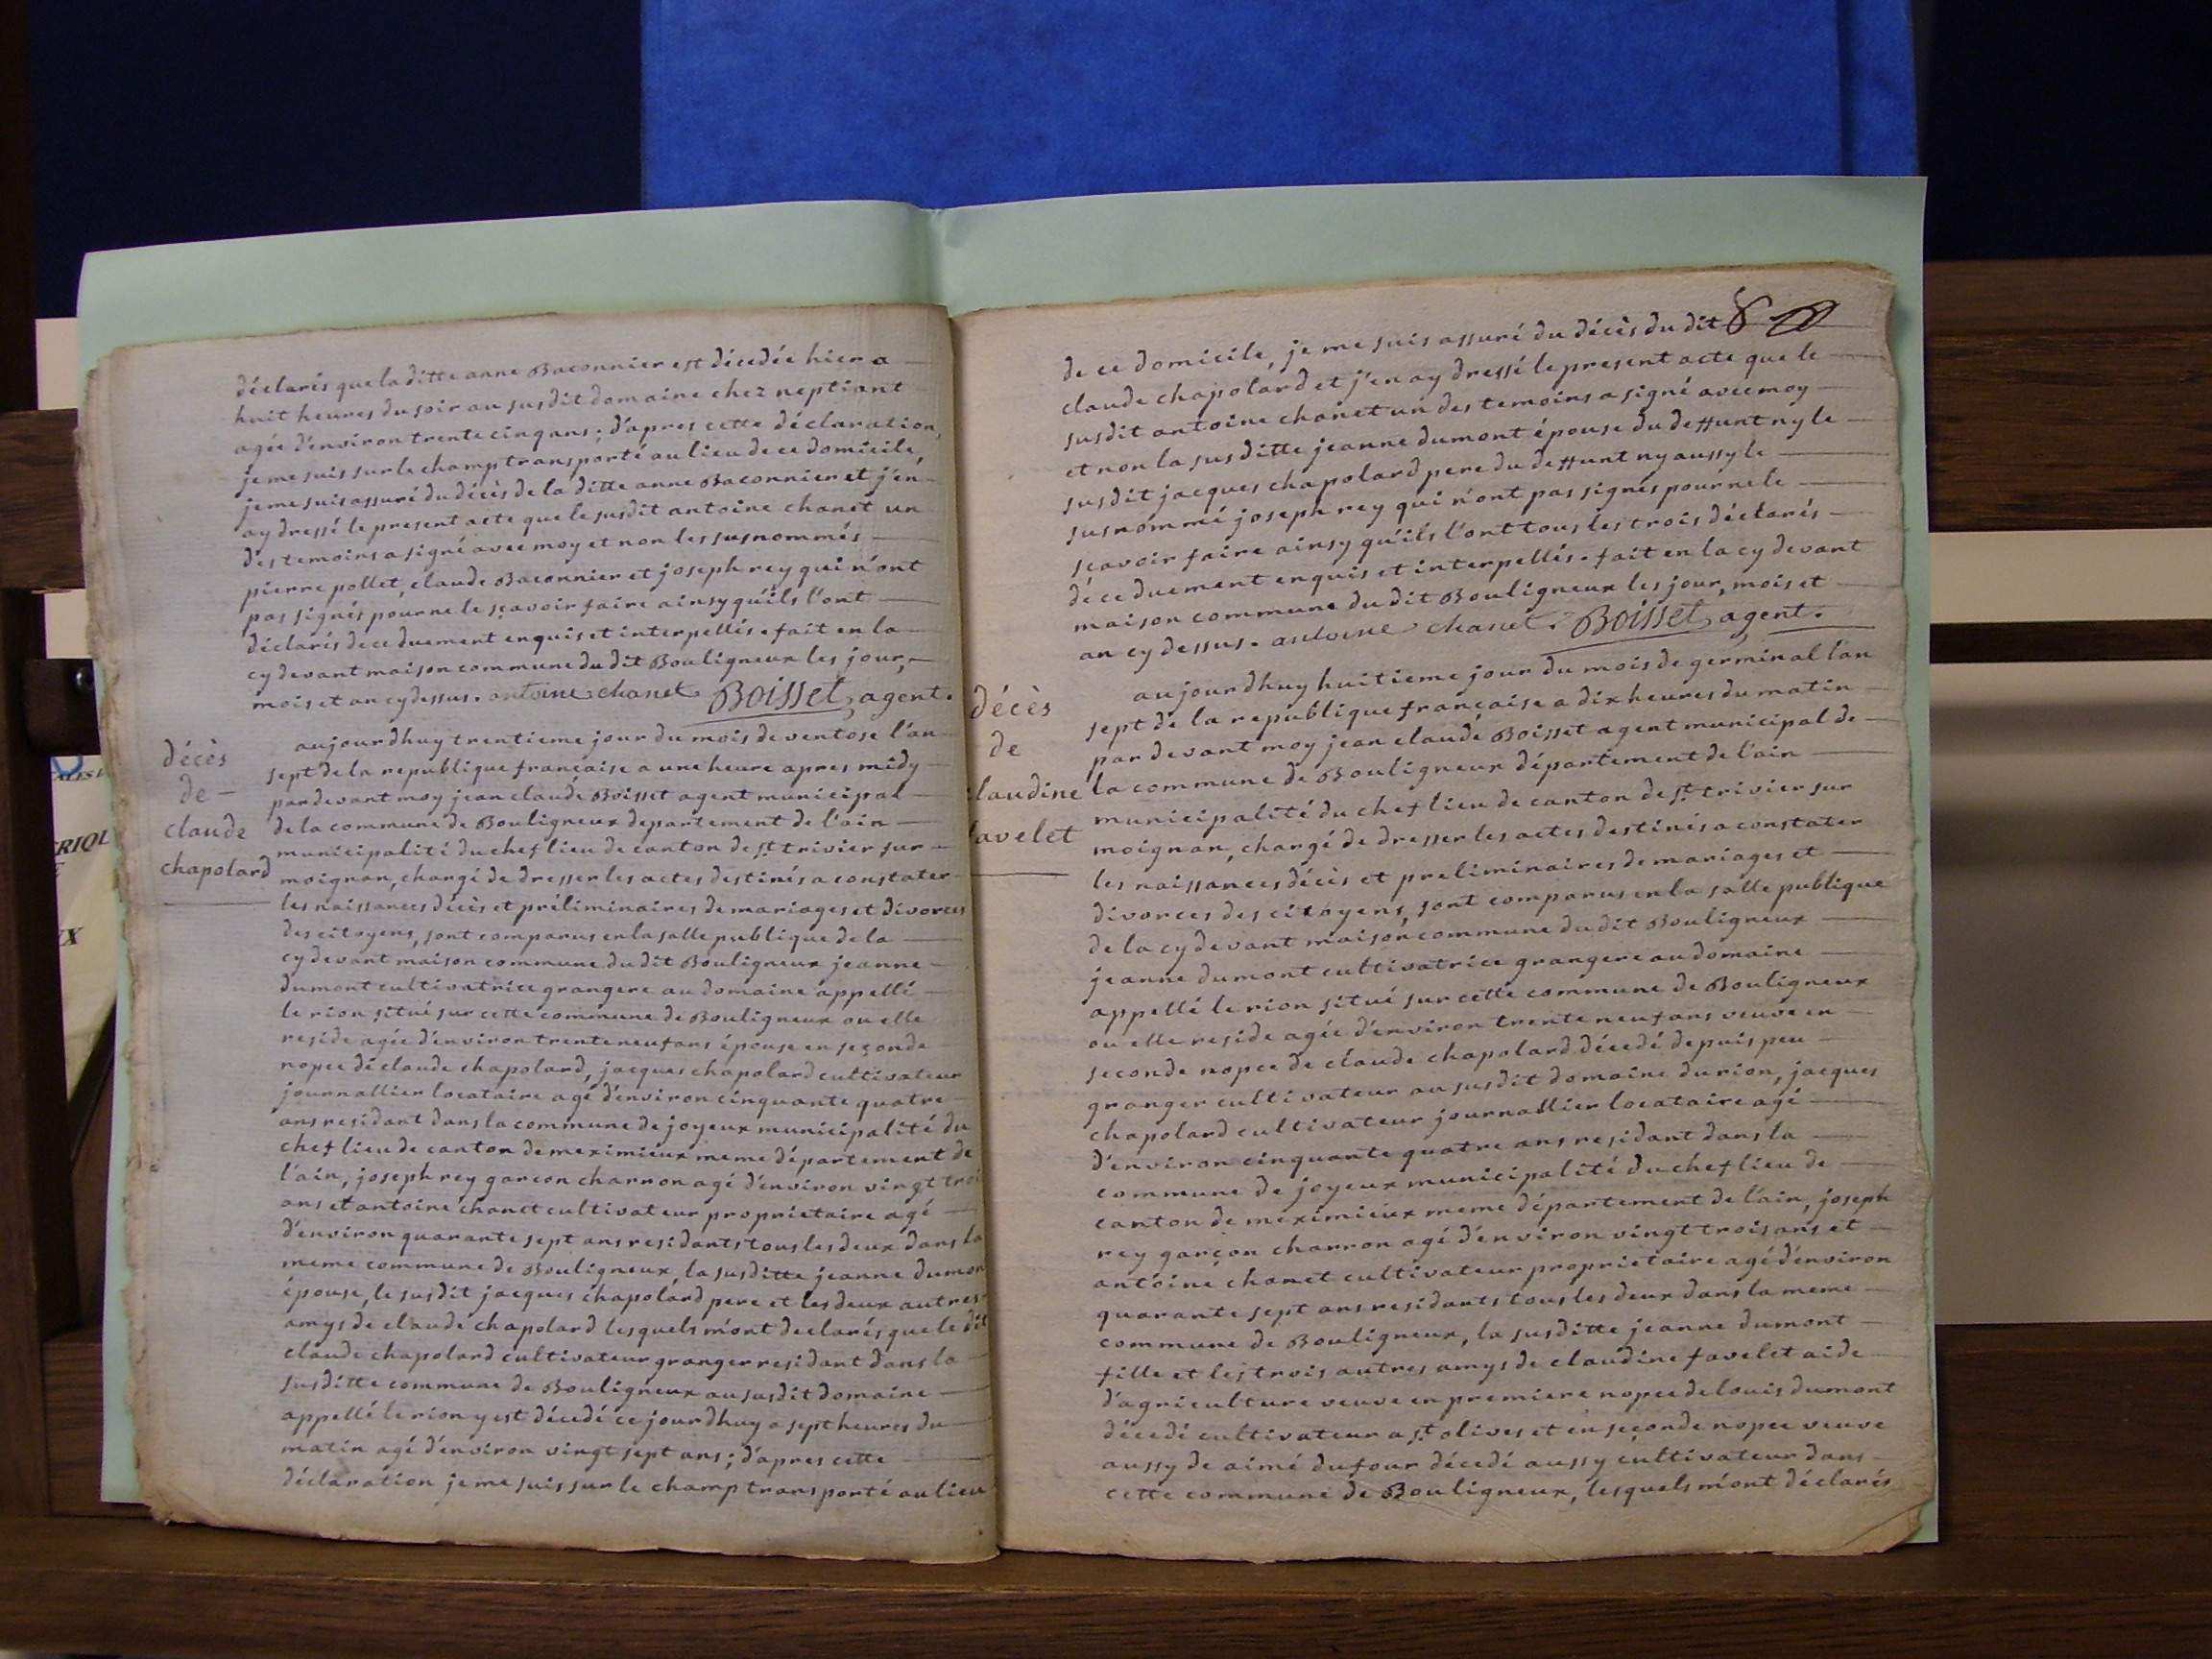 déclarés que la ditte anne Baconnier est décedée hier a
huit heures du soir au susdit domaine chez neptiant
agée d'environ trente cinq ans; d'apres cette déclaration,
je me suis sur le champ transporté au lieu de ce domicile,
je me suis assuré du décès de la ditte anne Baconnier et j'en
ay dressé le present acte que le susdit antoine chanet un
des temoins a signé avec moy et non les susnommés
pierre pollet, claude Baconnier et joseph rey qui n'ont
pas signés pour ne le sçavoir faire ainsy qu'ils l'ont
déclarés de ce duement enquis et interpellés. fait en la
cy devant maison commune du dit Bouligneux les jour,
mois et an cy dessus. antoine chanet Boisset, agent.
décès
de
claude
chapolard
aujourdhuy trentieme jour du mois de ventose l'an
sept de la republique française a une heure apres midy
pardevant moy jean claude Boisset agent municipal
de la commune de Bouligneux departement de l'ain
municipalité du chef lieu de canton de st. trivier sur
moignan, chargé de dresser les actes destinés a constater
les naissances décès et préliminaires de mariages et divorces
des citoyens, sont comparus en la salle publique de la
cy devant maison commune du dit Bouligneux jeanne
dumont cultivatrice grangere au domaine appellé
le rion situé sur cette commune de Bouligneux ou elle
reside agée d'environ trente neuf ans épouse en seconde
nopce de claude chapolard, jacques chapolard cultivateur
journallier locataire agé d'environ cinquante quatre
ans residant dans la commune de joyeux municipalité du
chef lieu de canton de meximieux meme département de
l'ain, joseph rey garcon charron agé d'environ vingt troi
ans et antoine chanet cultivateur proprietaire agé
d'environ quarante sept ans residants tous les deux dans la
meme commune de Bouligneux, la susditte jeanne dumon
épouse, le susdit jacques chapolard pere et les deux autres
amys de claude chapolard lesquels m'ont declarés que le dit
claude chapolard cultivateur granger residant dans la
susditte commune de Bouligneux au susdit domaine
appellé le rion y est décedé ce jourdhuy a sept heures du
matin agé d'environ vingt sept ans; d'apres cette
déclaration je me suis sur le champ transporté au lieu
de ce domicile, je me suis assuré du décès du dit
claude chapolard et j'en ay dressé le present acte que le
susdit antoine chanet un des temoins a signé avec moy
et non la susditte jeanne dumont épouse du deffunt ny le
susdit jacques chapolard pere du deffunt ny aussy le
susnommé joseph rey qui n'ont pas signés pour ne le
sçavoir faire ainsy qu'ils l'ont tous les trois déclarés
de ce duement enquis et interpellés. fait en la cy devant
maison commune du dit Bouligneux les jour, mois et
an cy dessus. antoine chanet. Boisset, agent.
décès
de
claudine
favelet
aujourdhuy huitieme jour du mois de germinal l'an
sept de la republique française a dix heures du matin
par devant moy jean claude Boisset agent municipal de
la commune de Bouligneux département de l'ain
municipalité du chef lieu de canton de st. trivier sur
moignan, chargé de dresser les actes destinés a constater
les naissances décès et preliminaires de mariages et
divorces des citoyens, sont comparus en la salle publique
de la cy devant maison commune du dit Bouligneux
jeanne dumont cultivatrice grangere au domaine
appellé le rion situé sur cette commune de Bouligneux
ou elle reside agée d'environ trente neuf ans veuve en
seconde nopce de claude chapolard décedé depuis peu
granger cultivateur au susdit domaine du rion, jacques
chapolard cultivateur journallier locataire agé
d'environ cinquante quatre ans residant dans la
commune de joyeux municipalité du chef lieu de
canton de meximieux meme département de l'ain, joseph
rey garçon charron agé d'environ vingt trois ans et
antoine chanet cultivateur proprietaire agé d'environ
quarante sept ans residants tous les deux dans la meme
commune de Bouligneux, la susditte jeanne dumont
fille et les trois autres amys de claudine favelet aide
d'agriculture veuve en premiere nopce de louis dumont
décedé cultivateur a st. olives et en seconde nopce veuve
aussy de aimé dufour décedé aussy cultivateur dans
cette commune de Bouligneux, lesquels m'ont déclarés